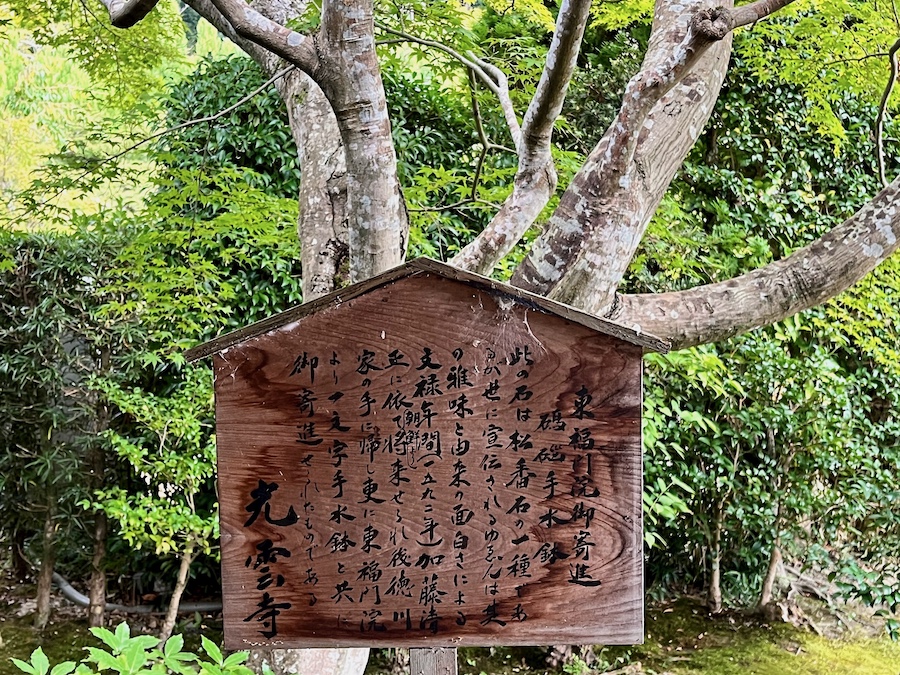 東福門院御寄進
礎石手水鉢
此の石は松香石の一種であ
るが世に宣伝されるゆゑんは其
の雅味と由来の面白さによる
文禄年間(一五九二年)加藤清
正に依て朝鮮より将来せられ後徳川
家の手に帰し更に東福門院
より一文字手水鉢と共に
御寄進せられたものである
光雲寺